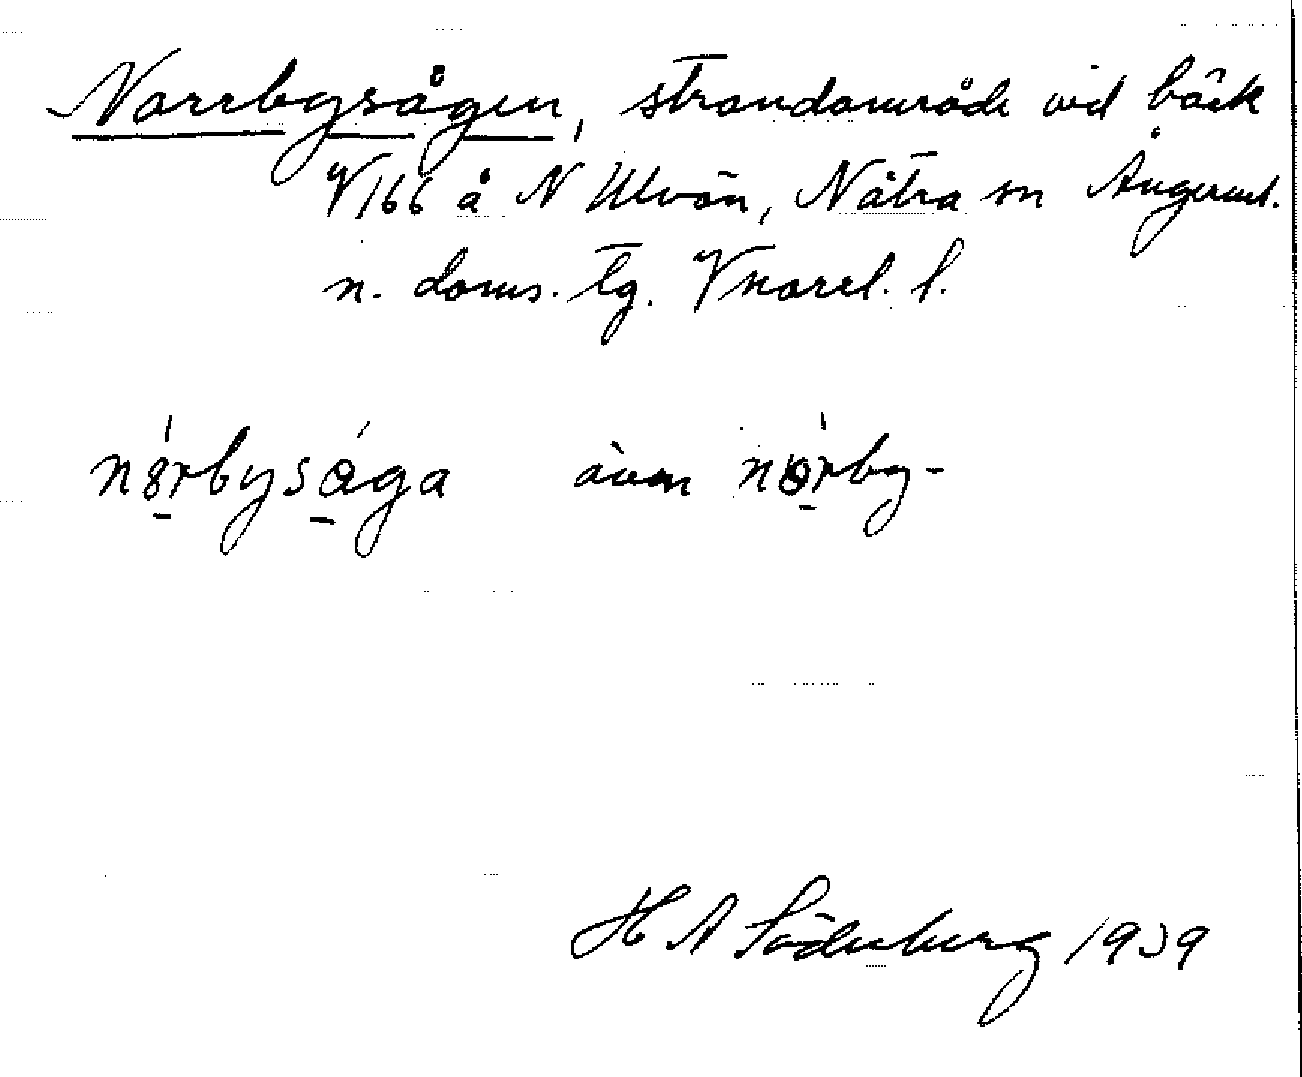 Norrbysågen, strandområde vid bäck
V166 å N Ulvön, Nätra sn Ångerml.
n. doms. tg. Vnorrl. l.
nørbysåga även nørby-
H A Söderberg 1939